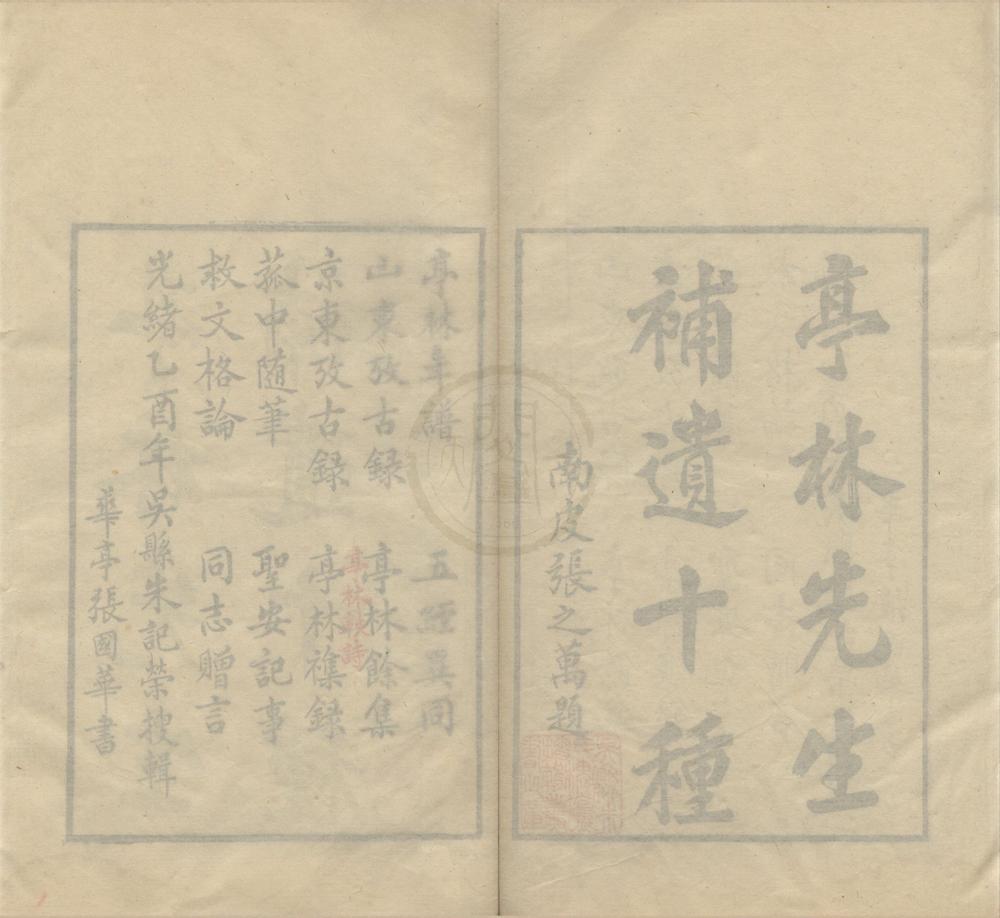 亭林先生
補遺十種
南皮張之萬題
亭林年譜 五經異同
山東攷古錄 亭林餘集
亭林軼詩
京東攷古錄 亭林襍錄
菰中隨筆 聖安記事
救文格論 同志贈言
光緒乙酉年吳縣朱記榮搜輯
華亭張國華書